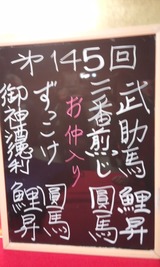 第145回
武助馬 鯉昇
二番煎じ 圓馬
お仲入り
ずっこけ 圓馬
御神酒徳利 鯉昇